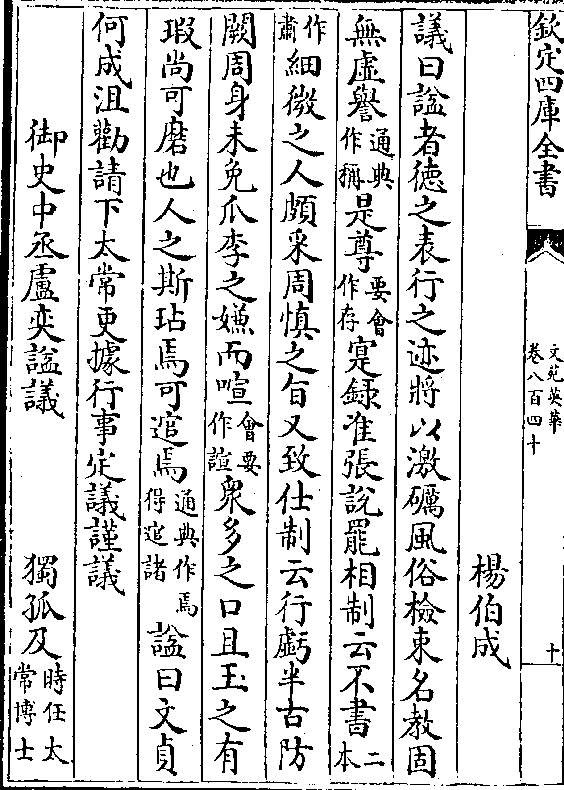 欽定四庫全書
文苑英華
卷八百四十
十
楊伯成
議曰諡者德之表行之迹將以激礪風俗檢束名教固
無虛譽通典作稱是尊要會作存寔錄准張說罷相制云不書二本
作肅細微之人頗釆周慎之旨又致仕制云行虧半古防
闕周身未免瓜李之嫌而喧會要作諠衆多之口且玉之有
瑕尚可磨也人之斯玷焉可逭焉通典作焉得逭諸諡曰文貞
何成沮勸請下太常更據行事定議謹議
御史中丞盧奕諡議 獨孤及時任太常博士